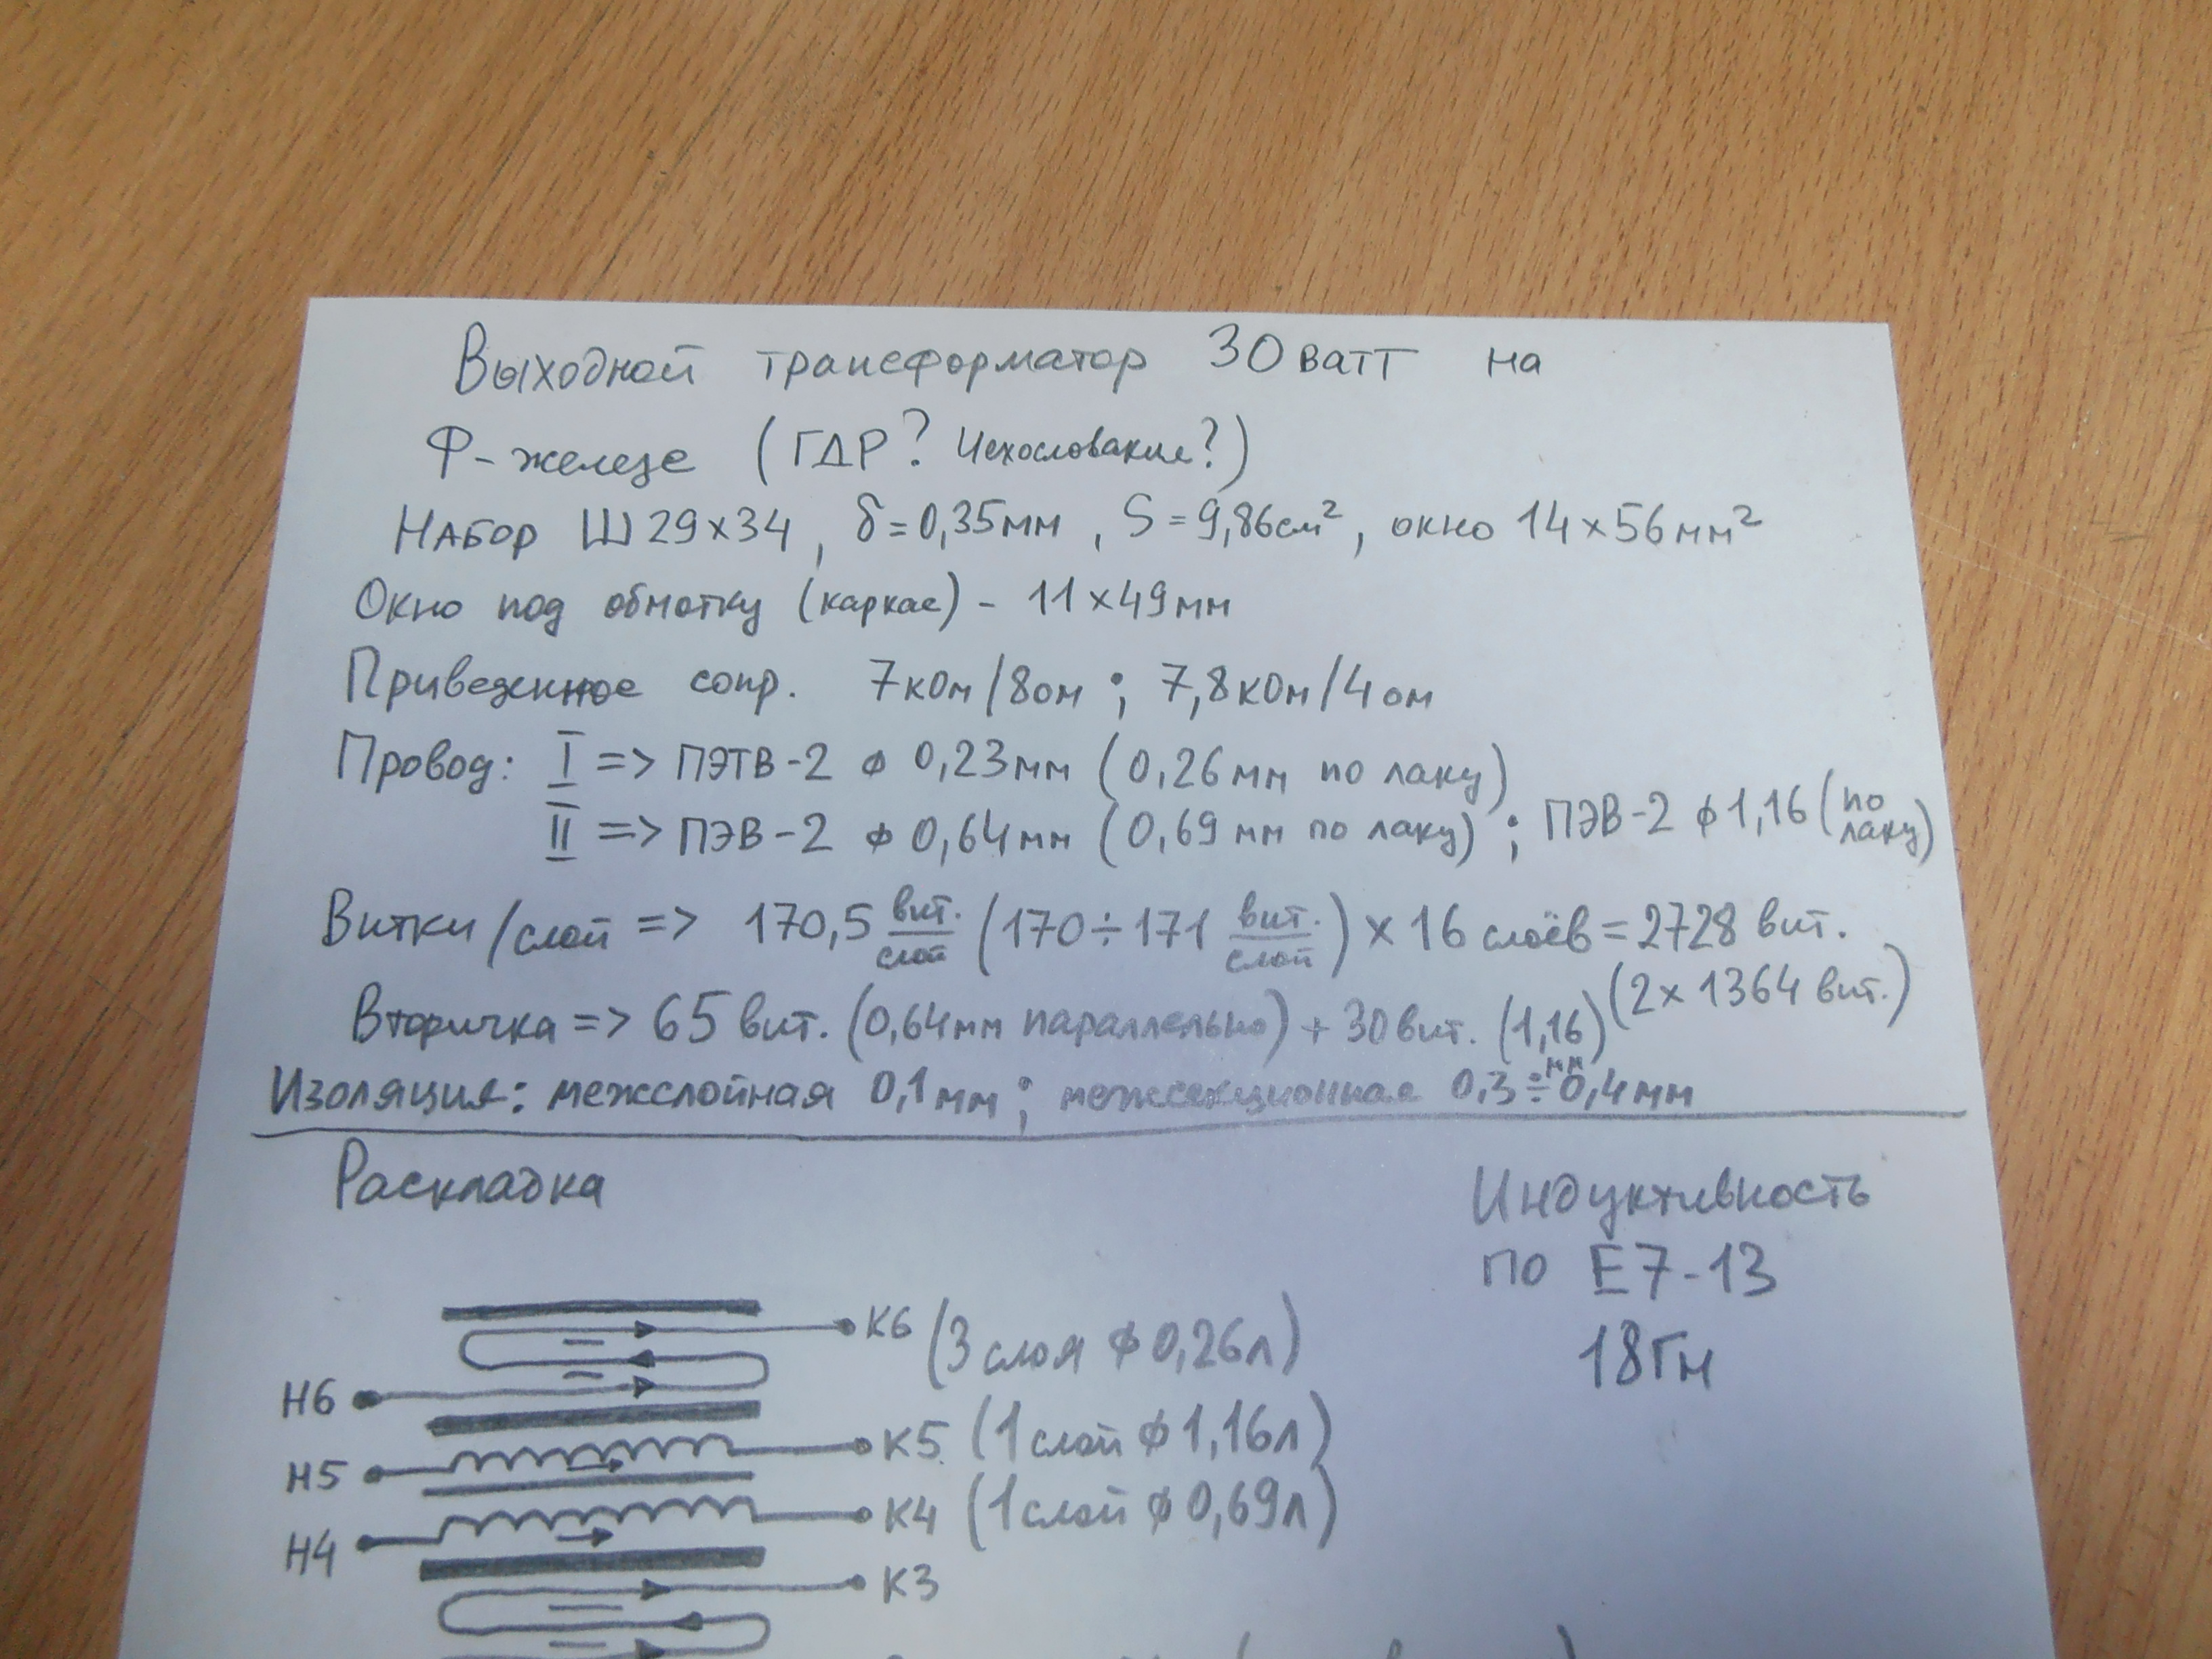 Выходной трансформатор 30 ватт на
Ф-железе (ГДР? Чехословакия?)
Набор Ш29×34, δ=0,35мм, S=9,86см², окно 14×56мм²
Окно под обмотку (каркас) - 11×49мм
Приведенное сопр. 7кОм/8ом; 7,8кОм/4ом
Провод: I => ПЭТВ-2 ⌀ 0,23мм (0,26мм по лаку)
II => ПЭВ-2 ⌀ 0,64мм (0,69мм по лаку); ПЭВ-2 ⌀1,16 (по лаку)
Витки/слой => 170,5 вит./слой (170÷171 вит./слой) × 16 слоёв = 2728 вит.
(2×1364 вит.)
Вторичка => 65 вит. (0,64мм параллельно) + 30 вит. (1,16)
мм
Изоляция: межслойная 0,1мм; межсекционная 0,3÷0,4мм
Раскладка
Индуктивность
по Е7-13
18Гн
К6 (3 слоя ⌀0,26л)
Н6
К5 (1 слой ⌀1,16л)
Н5
К4 (1 слой ⌀0,69л)
Н4
К3